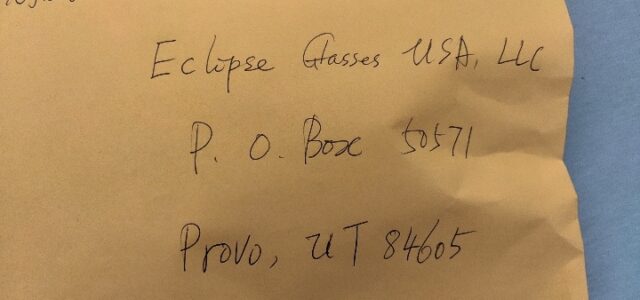 Eclipse Glasses USA, LLC
P. O. Box 50571
Provo, UT 84605